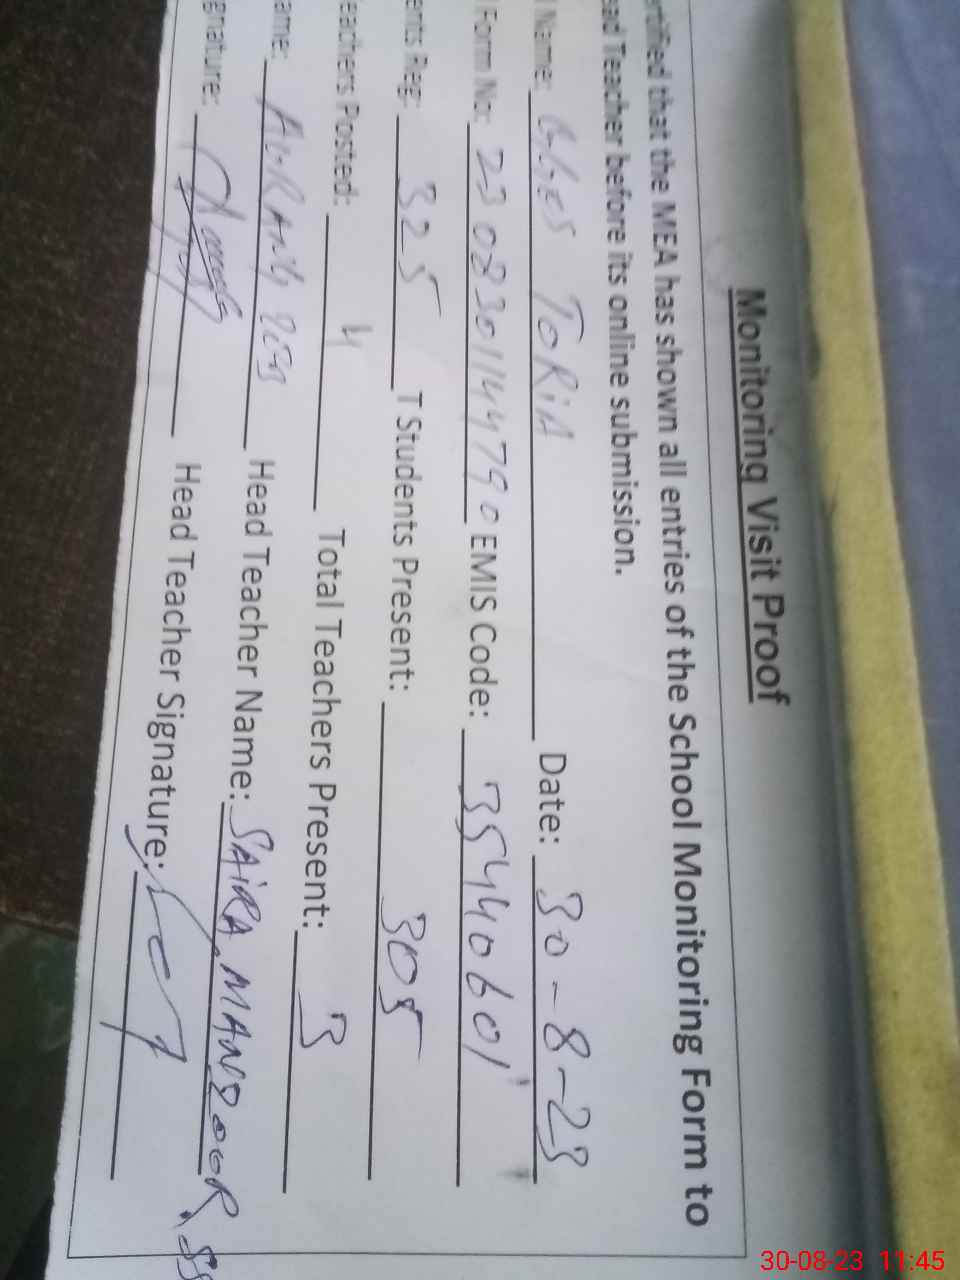 Monitoring Visit Proof
ertified that the MEA has shown all entries of the School Monitoring Form to
ead Teacher before its online submission.
l Name: GGES TORiA Date: 30-8-23
l Form No: EMIS Code: 35440601
ents Reg: 325 T Students Present: 305
eachers Posted: 4 Total Teachers Present: 3
ame: Head Teacher Name: SAiRA MANZOOR
gnature: Head Teacher Signature:
30-08-23 11:45